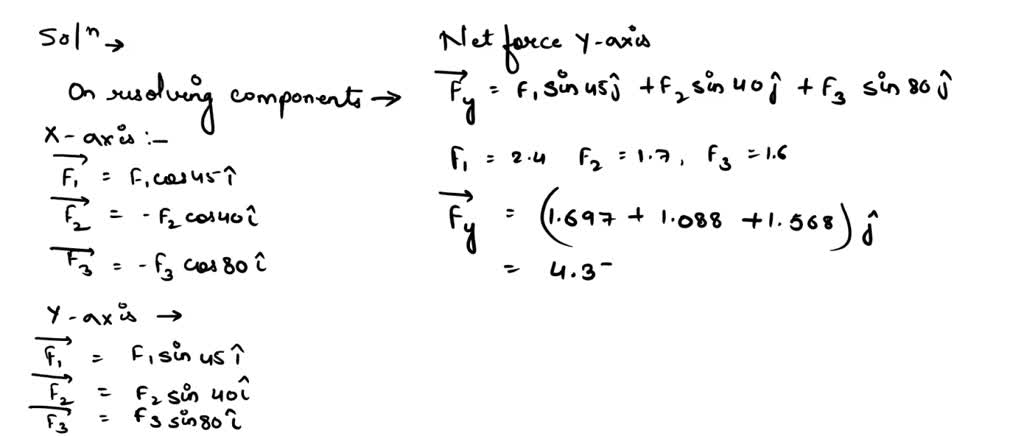 Solⁿ →
On resolving components →
X-axis :-
F₁→ = F₁cos45 î
F₂→ = - F₂ cos40 î
F₃→ = - F₃ cos 80 î
Y-axis →
F₁→ = F₁ sin 45 î
F₂→ = F₂ sin 40 î
F₃→ = F₃ sin 80 î
Net force Y-axis
Fy→ = F₁ sin 45 ĵ + F₂ sin 40 ĵ + F₃ sin 80 ĵ
F₁ = 2.4 F₂ = 1.7, F₃ = 1.6
Fy→ = (1.697 + 1.088 + 1.568) ĵ
= 4.3